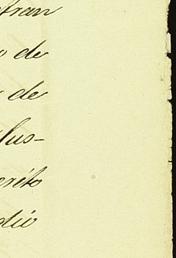 tran
de
de
lus-
erito
dió